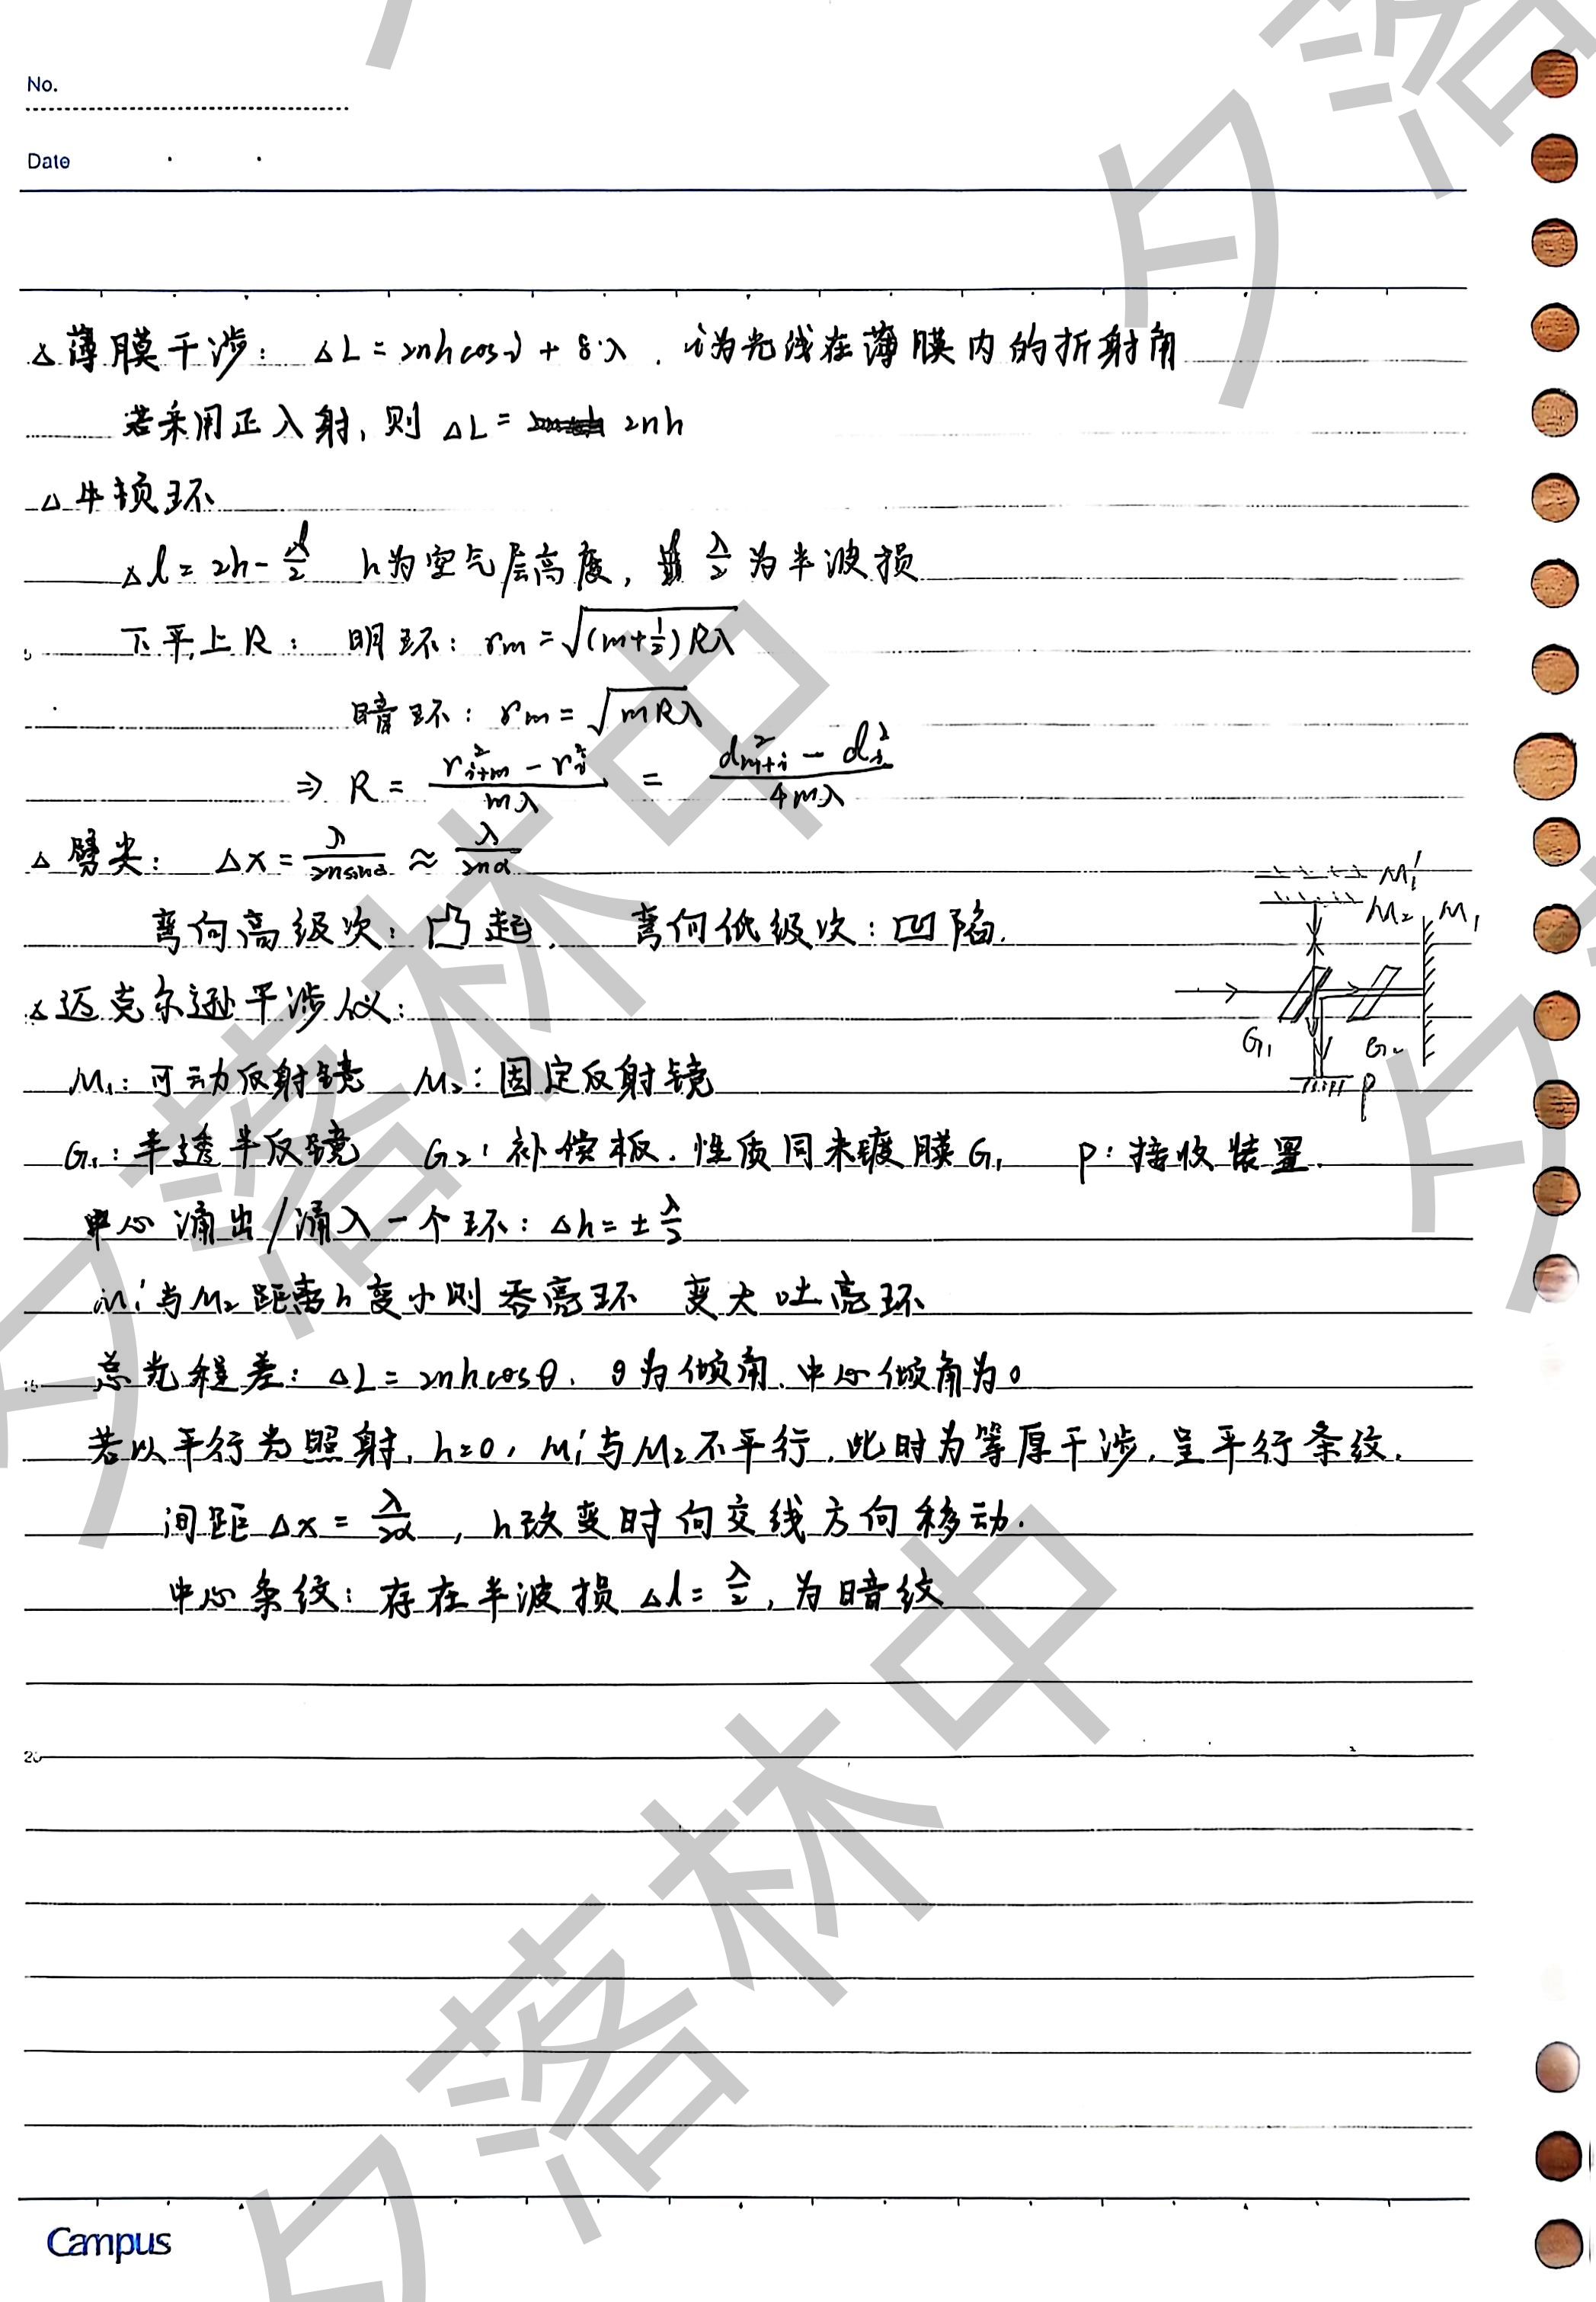 No.
Date
△薄膜干涉: ΔL=2nhcosi+δ·λ. i为光线在薄膜内的折射角
若采用正入射, 则 ΔL= 2nh
△牛顿环
Δl=2h-λ/2 h为空气层高度, λ/2为半波损
5 下平上R: 明环: rm=√((m+1/2)Rλ)
暗环: rm=√(mRλ)
⇒ R=(r²i+m-r²i)/(mλ)=(d²m+i-d²i)/(4mλ)
△劈尖: Δx=λ/(2nsinα)≈λ/(2nα)
弯向高级次: 凸起, 弯向低级次: 凹陷.
△迈克尔逊干涉仪:
M₁' M₂ M₁
G₁ G₂ P
M₁: 可动反射镜 M₂: 固定反射镜
G₁: 半透半反镜 G₂: 补偿板. 性质同未镀膜G₁ P: 接收装置.
中心涌出/涌入一个环: Δh=±λ/2
M₁'与M₂距离h变小则吞亮环 变大吐亮环
15 总光程差: ΔL=2nhcosθ. θ为倾角. 中心倾角为0
若以平行光照射, h=0, M₁'与M₂不平行, 此时为等厚干涉, 呈平行条纹.
间距Δx=λ/2α, h改变时向交线方向移动.
中心条纹: 存在半波损Δl=λ/2, 为暗纹
20
Campus
夕落林中
夕落林中
夕落
夕